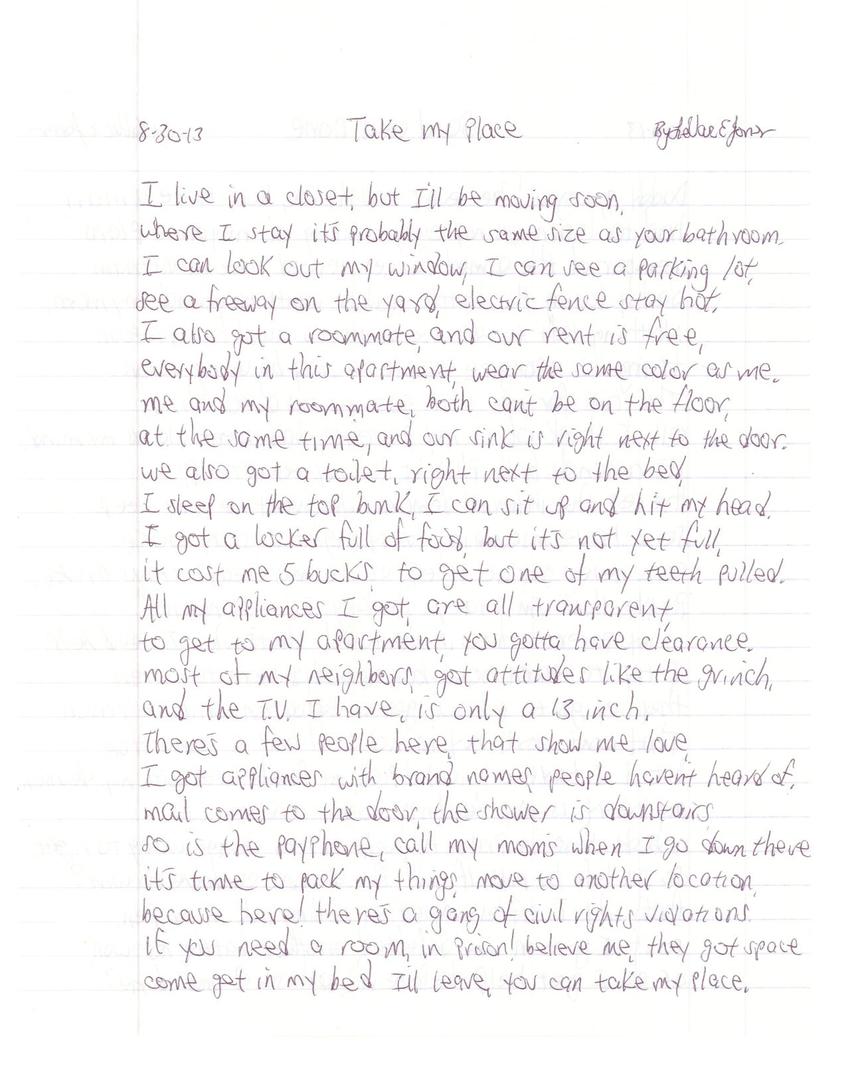 8-30-13 Take my Place By E Jones
I live in a closet, but I'll be moving soon,
where I stay it's probably the same size as your bathroom.
I can look out my window, I can see a parking lot,
see a freeway on the yard, electric fence stay hot.
I also got a roommate, and our rent is free,
everybody in this apartment, wear the same color as me.
me and my roommate, both can't be on the floor,
at the same time, and our sink is right next to the door.
we also got a toilet, right next to the bed,
I sleep on the top bunk, I can sit up and hit my head.
I got a locker full of food, but it's not yet full,
it cost me 5 bucks, to get one of my teeth pulled.
All my appliances I got, are all transparent,
to get to my apartment, you gotta have clearance.
most of my neighbors, got attitudes like the grinch,
and the T.V. I have, is only a 13 inch.
There's a few people here, that show me love,
I got appliances with brand names, people haven't heard of.
mail comes to the door, the shower is downstairs
so is the payphone, call my mom's when I go down there
it's time to pack my things, move to another location,
because here! there's a gang of civil rights violations.
if you need a room, in prison! believe me, they got space
come get in my bed I'll leave, you can take my place.